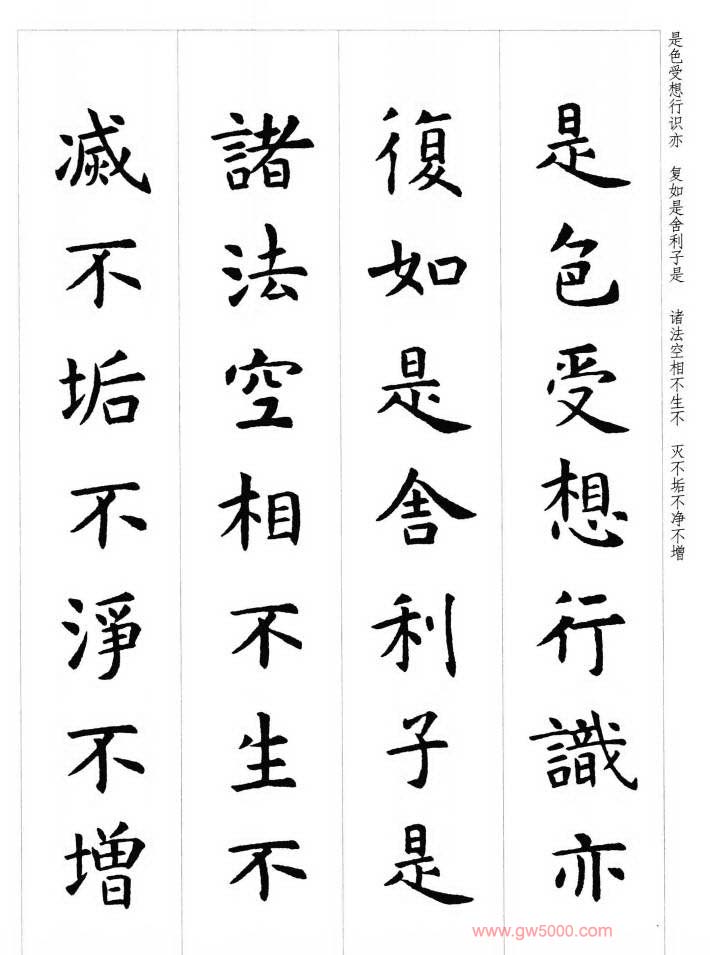 是色受想行識亦
復如是舍利子是
諸法空相不生不
滅不垢不淨不增
是色受想行识亦 复如是舍利子是 诸法空相不生不 灭不垢不净不增
www.gw5000.com